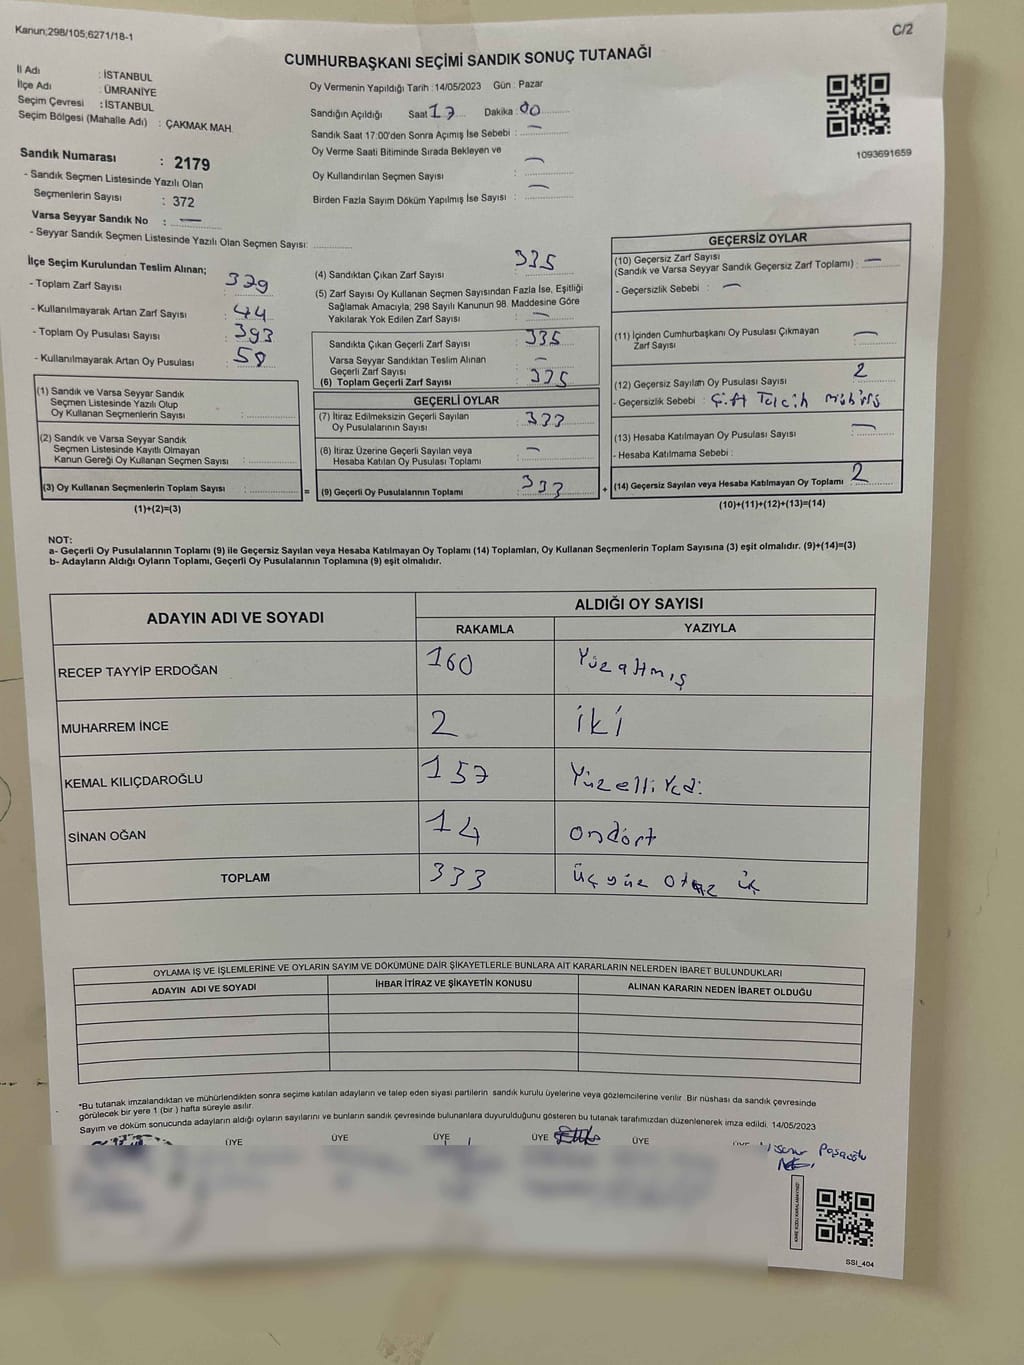 Kanun;298/105;6271/18-1
C/2
CUMHURBAŞKANI SEÇİMİ SANDIK SONUÇ TUTANAĞI
İl Adı : İSTANBUL
İlçe Adı : ÜMRANİYE
Seçim Çevresi : İSTANBUL
Seçim Bölgesi (Mahalle Adı) : ÇAKMAK MAH.
Sandık Numarası : 2179
- Sandık Seçmen Listesinde Yazılı Olan
Seçmenlerin Sayısı : 372
Varsa Seyyar Sandık No : —
- Seyyar Sandık Seçmen Listesinde Yazılı Olan Seçmen Sayısı:
Oy Vermenin Yapıldığı Tarih : 14/05/2023 Gün : Pazar
Sandığın Açıldığı Saat 17 Dakika : 00
Sandık Saat 17:00'den Sonra Açımış İse Sebebi : —
Oy Verme Saati Bitiminde Sırada Bekleyen ve
Oy Kullandırılan Seçmen Sayısı : —
Birden Fazla Sayım Döküm Yapılmış İse Sayısı : —
1093691659
İlçe Seçim Kurulundan Teslim Alınan;
- Toplam Zarf Sayısı : 379
- Kullanılmayarak Artan Zarf Sayısı : 44
- Toplam Oy Pusulası Sayısı : 393
- Kullanılmayarak Artan Oy Pusulası : 58
(1) Sandık ve Varsa Seyyar Sandık
Seçmen Listesinde Yazılı Olup
Oy Kullanan Seçmenlerin Sayısı :
(2) Sandık ve Varsa Seyyar Sandık
Seçmen Listesinde Kayıtlı Olmayan
Kanun Gereği Oy Kullanan Seçmen Sayısı :
(3) Oy Kullanan Seçmenlerin Toplam Sayısı :
(1)+(2)=(3)
=
(4) Sandıktan Çıkan Zarf Sayısı : 335
(5) Zarf Sayısı Oy Kullanan Seçmen Sayısından Fazla İse, Eşitliği
Sağlamak Amacıyla; 298 Sayılı Kanunun 98. Maddesine Göre
Yakılarak Yok Edilen Zarf Sayısı : —
Sandıkta Çıkan Geçerli Zarf Sayısı : 335
Varsa Seyyar Sandıktan Teslim Alınan
Geçerli Zarf Sayısı : —
(6) Toplam Geçerli Zarf Sayısı : 335
GEÇERLİ OYLAR
(7) İtiraz Edilmeksizin Geçerli Sayılan
Oy Pusulalarının Sayısı : 333
(8) İtiraz Üzerine Geçerli Sayılan veya
Hesaba Katılan Oy Pusulası Toplamı : —
(9) Geçerli Oy Pusulalarının Toplamı : 333
+
GEÇERSİZ OYLAR
(10) Geçersiz Zarf Sayısı
(Sandık ve Varsa Seyyar Sandık Geçersiz Zarf Toplamı) : —
- Geçersizlik Sebebi : —
(11) İçinden Cumhurbaşkanı Oy Pusulası Çıkmayan
Zarf Sayısı : —
(12) Geçersiz Sayılan Oy Pusulası Sayısı : 2
- Geçersizlik Sebebi : Çift Tercih
(13) Hesaba Katılmayan Oy Pusulası Sayısı : —
- Hesaba Katılmama Sebebi :
(14) Geçersiz Sayılan veya Hesaba Katılmayan Oy Toplamı : 2
(10)+(11)+(12)+(13)=(14)
NOT:
a- Geçerli Oy Pusulalarının Toplamı (9) ile Geçersiz Sayılan veya Hesaba Katılmayan Oy Toplamı (14) Toplamları, Oy Kullanan Seçmenlerin Toplam Sayısına (3) eşit olmalıdır. (9)+(14)=(3)
b- Adayların Aldığı Oyların Toplamı, Geçerli Oy Pusulalarının Toplamına (9) eşit olmalıdır.
ADAYIN ADI VE SOYADI
ALDIĞI OY SAYISI
RAKAMLA YAZIYLA
RECEP TAYYİP ERDOĞAN 160 Yüzaltmış
MUHARREM İNCE 2 iki
KEMAL KILIÇDAROĞLU 157 Yüzelliyedi
SİNAN OĞAN 14 ondört
TOPLAM 333 üç yüz otuz üç
OYLAMA İŞ VE İŞLEMLERİNE VE OYLARIN SAYIM VE DÖKÜMÜNE DAİR ŞİKAYETLERLE BUNLARA AİT KARARLARIN NELERDEN İBARET BULUNDUKLARI
ADAYIN ADI VE SOYADI İHBAR İTİRAZ VE ŞİKAYETİN KONUSU ALINAN KARARIN NEDEN İBARET OLDUĞU
*Bu tutanak imzalandıktan ve mühürlendikten sonra seçime katılan adayların ve talep eden siyasi partilerin sandık kurulu üyelerine veya gözlemcilerine verilir. Bir nüshası da sandık çevresinde
görülecek bir yere 1 (bir ) hafta süreyle asılır.
Sayım ve döküm sonucunda adayların aldığı oyların sayılarını ve bunların sandık çevresinde bulunanlara duyurulduğunu gösteren bu tutanak tarafımızdan düzenlenerek imza edildi. 14/05/2023
ÜYE ÜYE ÜYE ÜYE ÜYE
SSI_404